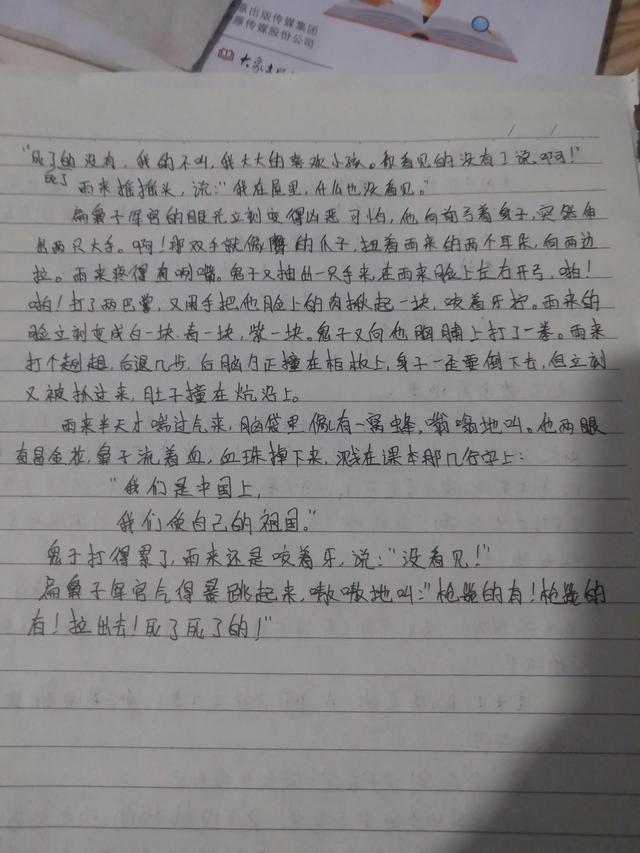 原出版传媒集团
原传媒股份公司
大象出版
"死了的没有，我的不叫，我大大的喜欢小孩。你看见的没有？说啊！"
死了
雨来摇摇头，说："我在屋里，什么也没看见。"
扁鼻子军官的眼光立刻变得凶恶可怕，他向前弓着身子，突然伸
出两只大手。啊！那双手就像鹰的爪子，扭着雨来的两个耳朵，向两边
拉。雨来疼得直咧嘴。鬼子又抽出一只手来，在雨来脸上左右开弓，啪！
啪！打了两巴掌，又用手把他脸上的肉揪起一块，咬着牙拧。雨来的
脸立刻变成白一块，青一块，紫一块。鬼子又向他胸脯上打了一拳。雨来
打个趔趄，后退几步，后脑勺正撞在柜板上，身子一歪要倒下去，但立刻
又被抓过来，肚子撞在炕沿上。
雨来半天才喘过气来，脑袋里像有一窝蜂，嗡嗡地叫。他两眼
直冒金花，鼻子流着血，血珠掉下来，溅在课本那几行字上：
"我们是中国上，
我们使自己的祖国。"
鬼子打得累了，雨来还是咬着牙，说："没看见！"
扁鼻子军官气得暴跳起来，嗷嗷地叫："枪毙的有！枪毙的
有！拉出去！死了死了的！"